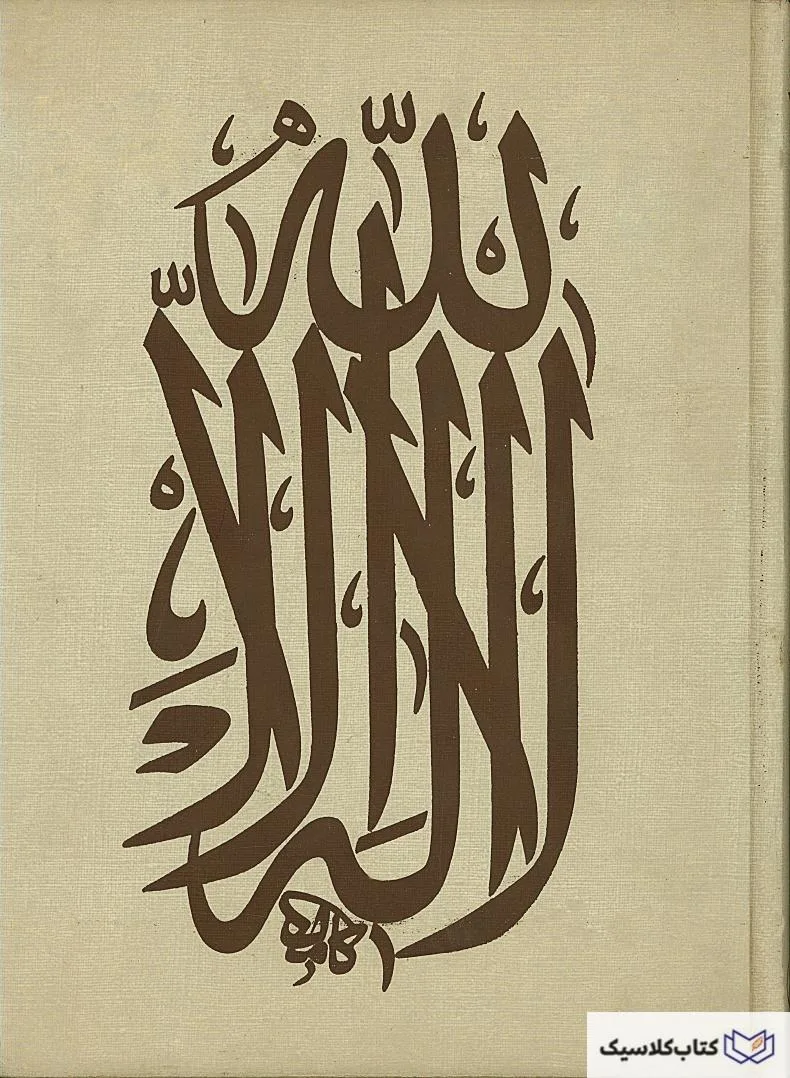 لا اله الا الله
کتاب کلاسیک